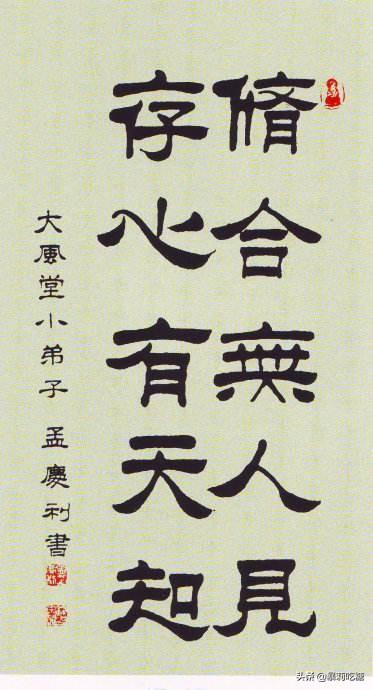 脩合無人見
存心有天知
大風堂小弟子 孟慶利書
头条 @暴莉吃糖